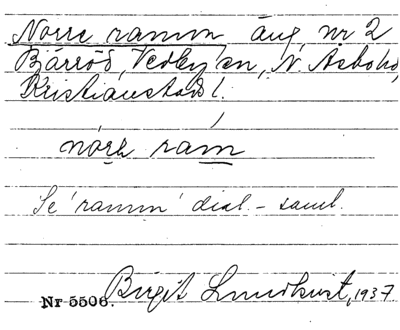 Norre ramm äng, nr 2
Bärröd, Vedby sn, N. Åsbohd,
Kristianstads l.
nórɛ ràm
Se 'ramm' dial.-saml.
Nr 5506. Birgit Lundkvist, 1937